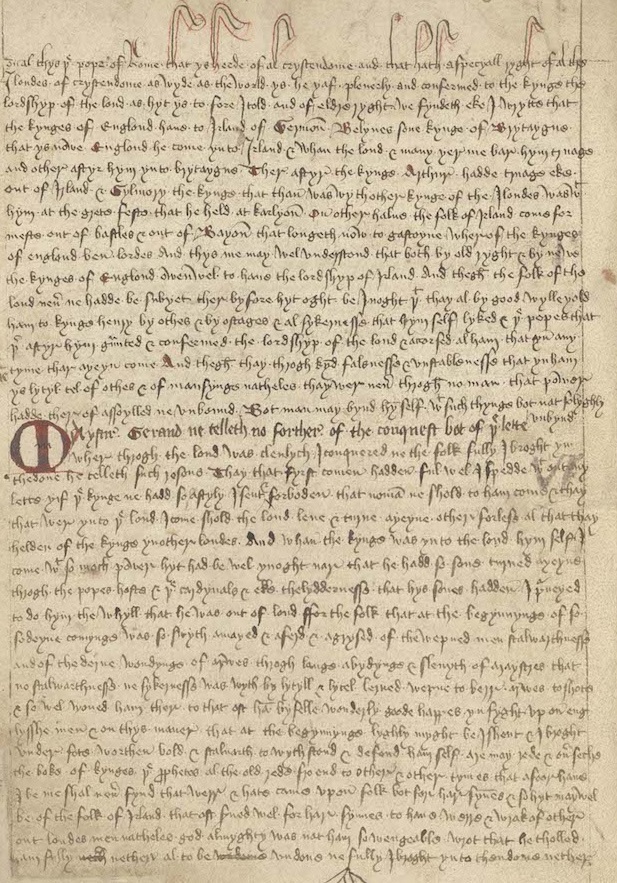 al thys þe pope of Rome that ys heede of al crystendome and that hath a specyall ryght of al the
Ilondes of crystendome as wyde as the world ys he yaf plenerly and confermed to the kynge the
lordshyp of the lond as hyt ys to fore I told and of eldre ryght we fyndeth eke I writte that
the kynges of England haue to Irland of Belynes sone kynge of Brytaygne
that ys nowe England he come ynto Irland & whan the lond & many yer me bar hym truage
and other aftyr hym ynto brytaygne Ther aftyr the kynge Arthur hadde truage eke
out of Irland & Gylmory the kynge that than was wyth other kynge of the Ilondes was wt
hym at the grete feste that he held at karlyon On other halue the folk of Irland come for
mest out of bascles & out of Bayon that longeth now to gascoyne wher of the kynges
of england ben lordes And thys me may wel vnderstond that both by old ryght & by newe
the kynges of England wel to haue the lordshyp of Irland And thegh the folk of the
lond neuer ne hadde be subyet ther byfore hyt oght be Inoght þt thay al by good wylle yold
ham to kynge henry by othes & by ostages & al sykernesse that hym self lyked & þe popes that
þt aftyr hym graunted & confermed the lordshyp of the lond & acorsed al ham that on any
tyme ther ayeyn come And thegh thay throgh falsnesse & vnstabilnesse that yn ham
ys lytyl tel of othes & of mansynge natheles thay wer neuer throgh no man that power
hadde ther of assoylled ne vnbound Bot man may bynd hymself wt such thynge bot not so lyghtly vnbynd
Maystre Gerand ne telleth no forther of the conquest bot of þe lette
wher throgh the lond was clenlych I conquered ne the folk fully I broght yn
thedone he telleth such resone Thay that fyrst comen hadden ful wel I spedde wt out any
lette yif þe kynge ne hadd so hastyly I sent & forboden that noman ne shold to ham come & thay
that wer ynto þe lond I come shold the lond leue & turne ayeyne other forlese al that thay
helden of the kynge yn other londes And whan the kynge was ynto the lond hym self I
come wt so moch power hyt had be wel ynoght nar that he hadd so sone turned ayeyne
throgh the popes heste & þe cardynals & the lyddernesse that hys sones hadden I purueyed
to do hym the whyll that he was out of lond ffor the folk that at the begynnynge of so
sodeyne comynge was so swyth amayed & aferd & agrysed of the wepned men stalwarthnesse
and of the deyne woundynge of arwes throgh lange abydynge & slewth of maystres that
no stalwarthnesse ne sykernesse was wyth by lytyll & lytel lerned wepne to berr arwes to shote
& so wel woned ham ther to that oft ham byfelle wonderly goode happes yn fyght vp on eng
lysshe men & on thys maner that at the begynnynge lyghtly myght be I shent & I broght
vnder fete worthen bold & stalwarth to wythstond & defend ham self
the boke of kynges þe prophetes al the old fro end to other & other tymes that afor haue
I be me shal neuer fynd that werr & hate came vpon folk bot for har synnes & so hyt may wel
be of the folk of Irland that oft seruod wel for harr synnes to haue werre & wrak of other
out londes men natheles god almyghty was not ham so wengeable wrot that he tholled
ham fully nether al to be vndone ne fully I broght ynto thewdome nether